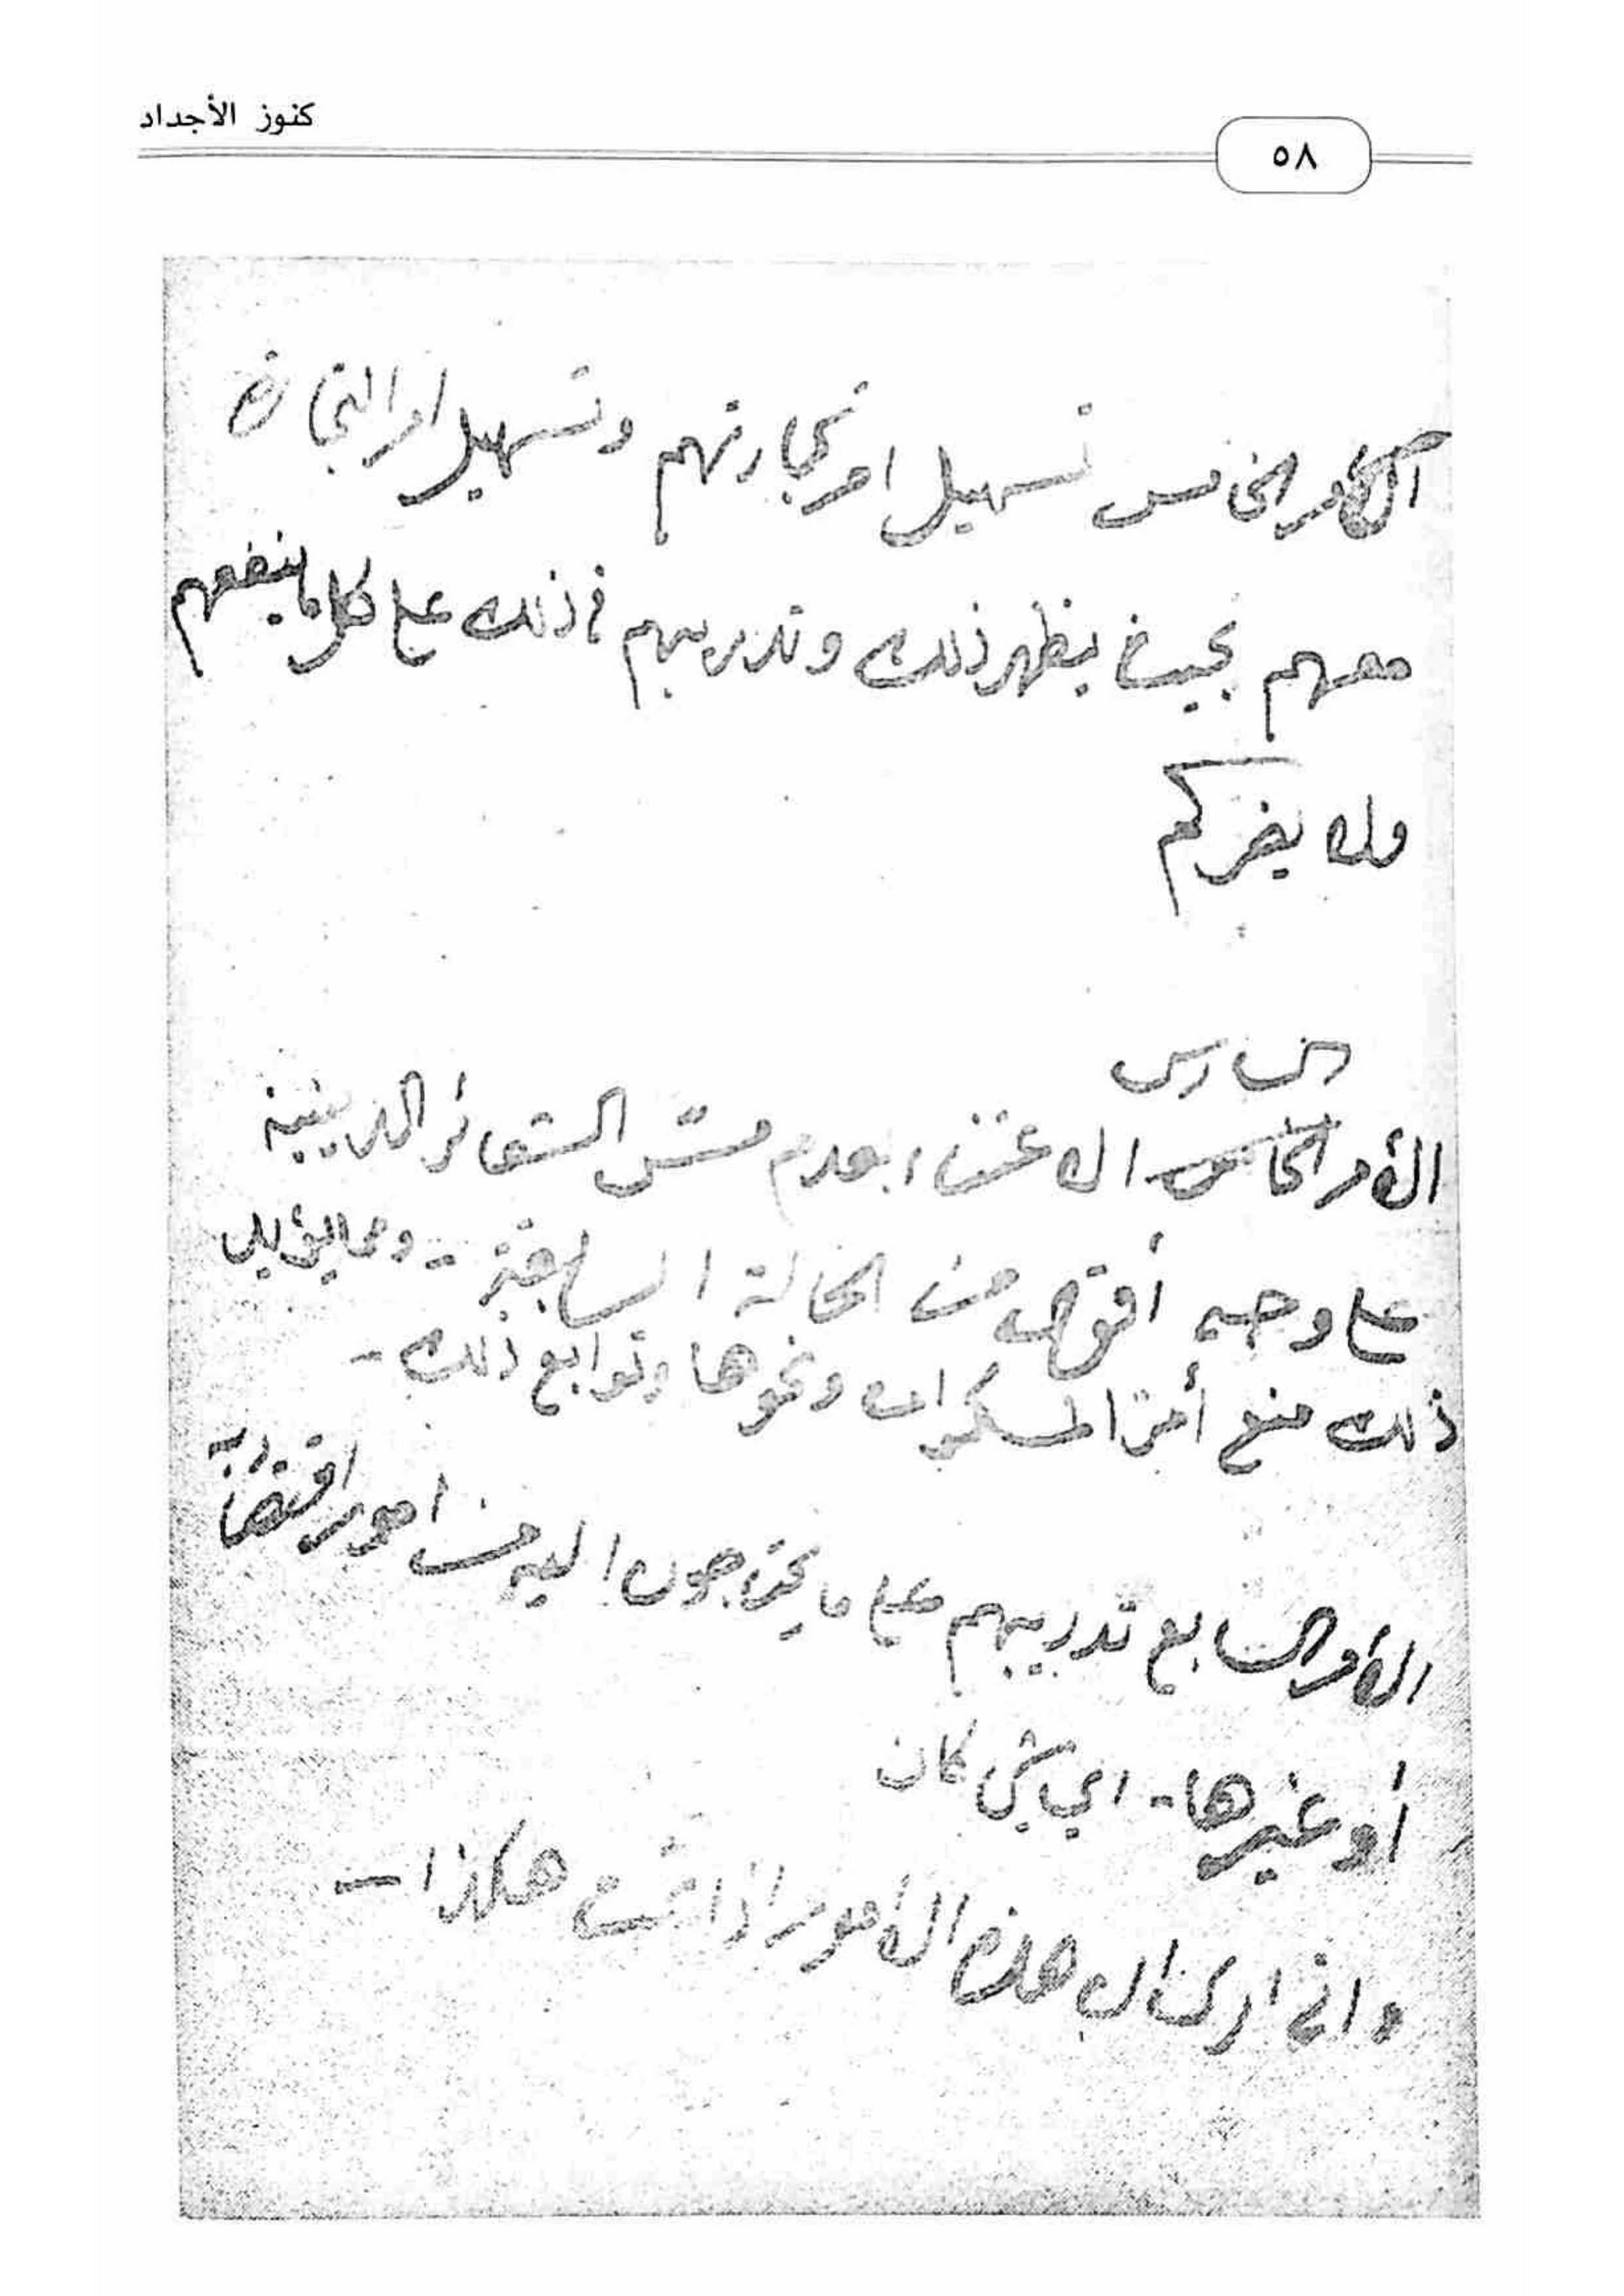 كنوز الأجداد
٥٨
الأمر الخامس تسهيل امر تجارتهم وتسهيل امر التجارة
معهم بحيث يظهر ذلك وتدريبهم في ذلك على كل ما ينفعهم
ولا يضركم
السادس
الأمر الخامس الاعتناء بعدم مس الشعائر الدينية
على وجه أقوى من الحالة السابقة - ومما يؤيد
ذلك منع أمر المسكرات ونحوها وتوابع ذلك -
الأمر السابع تدريبهم على ما يحتاجون اليه من امور اقتصادية
أو غيرها - اي شي كان
واني ارى ان هذه الأمور اذا تمت هكذا -